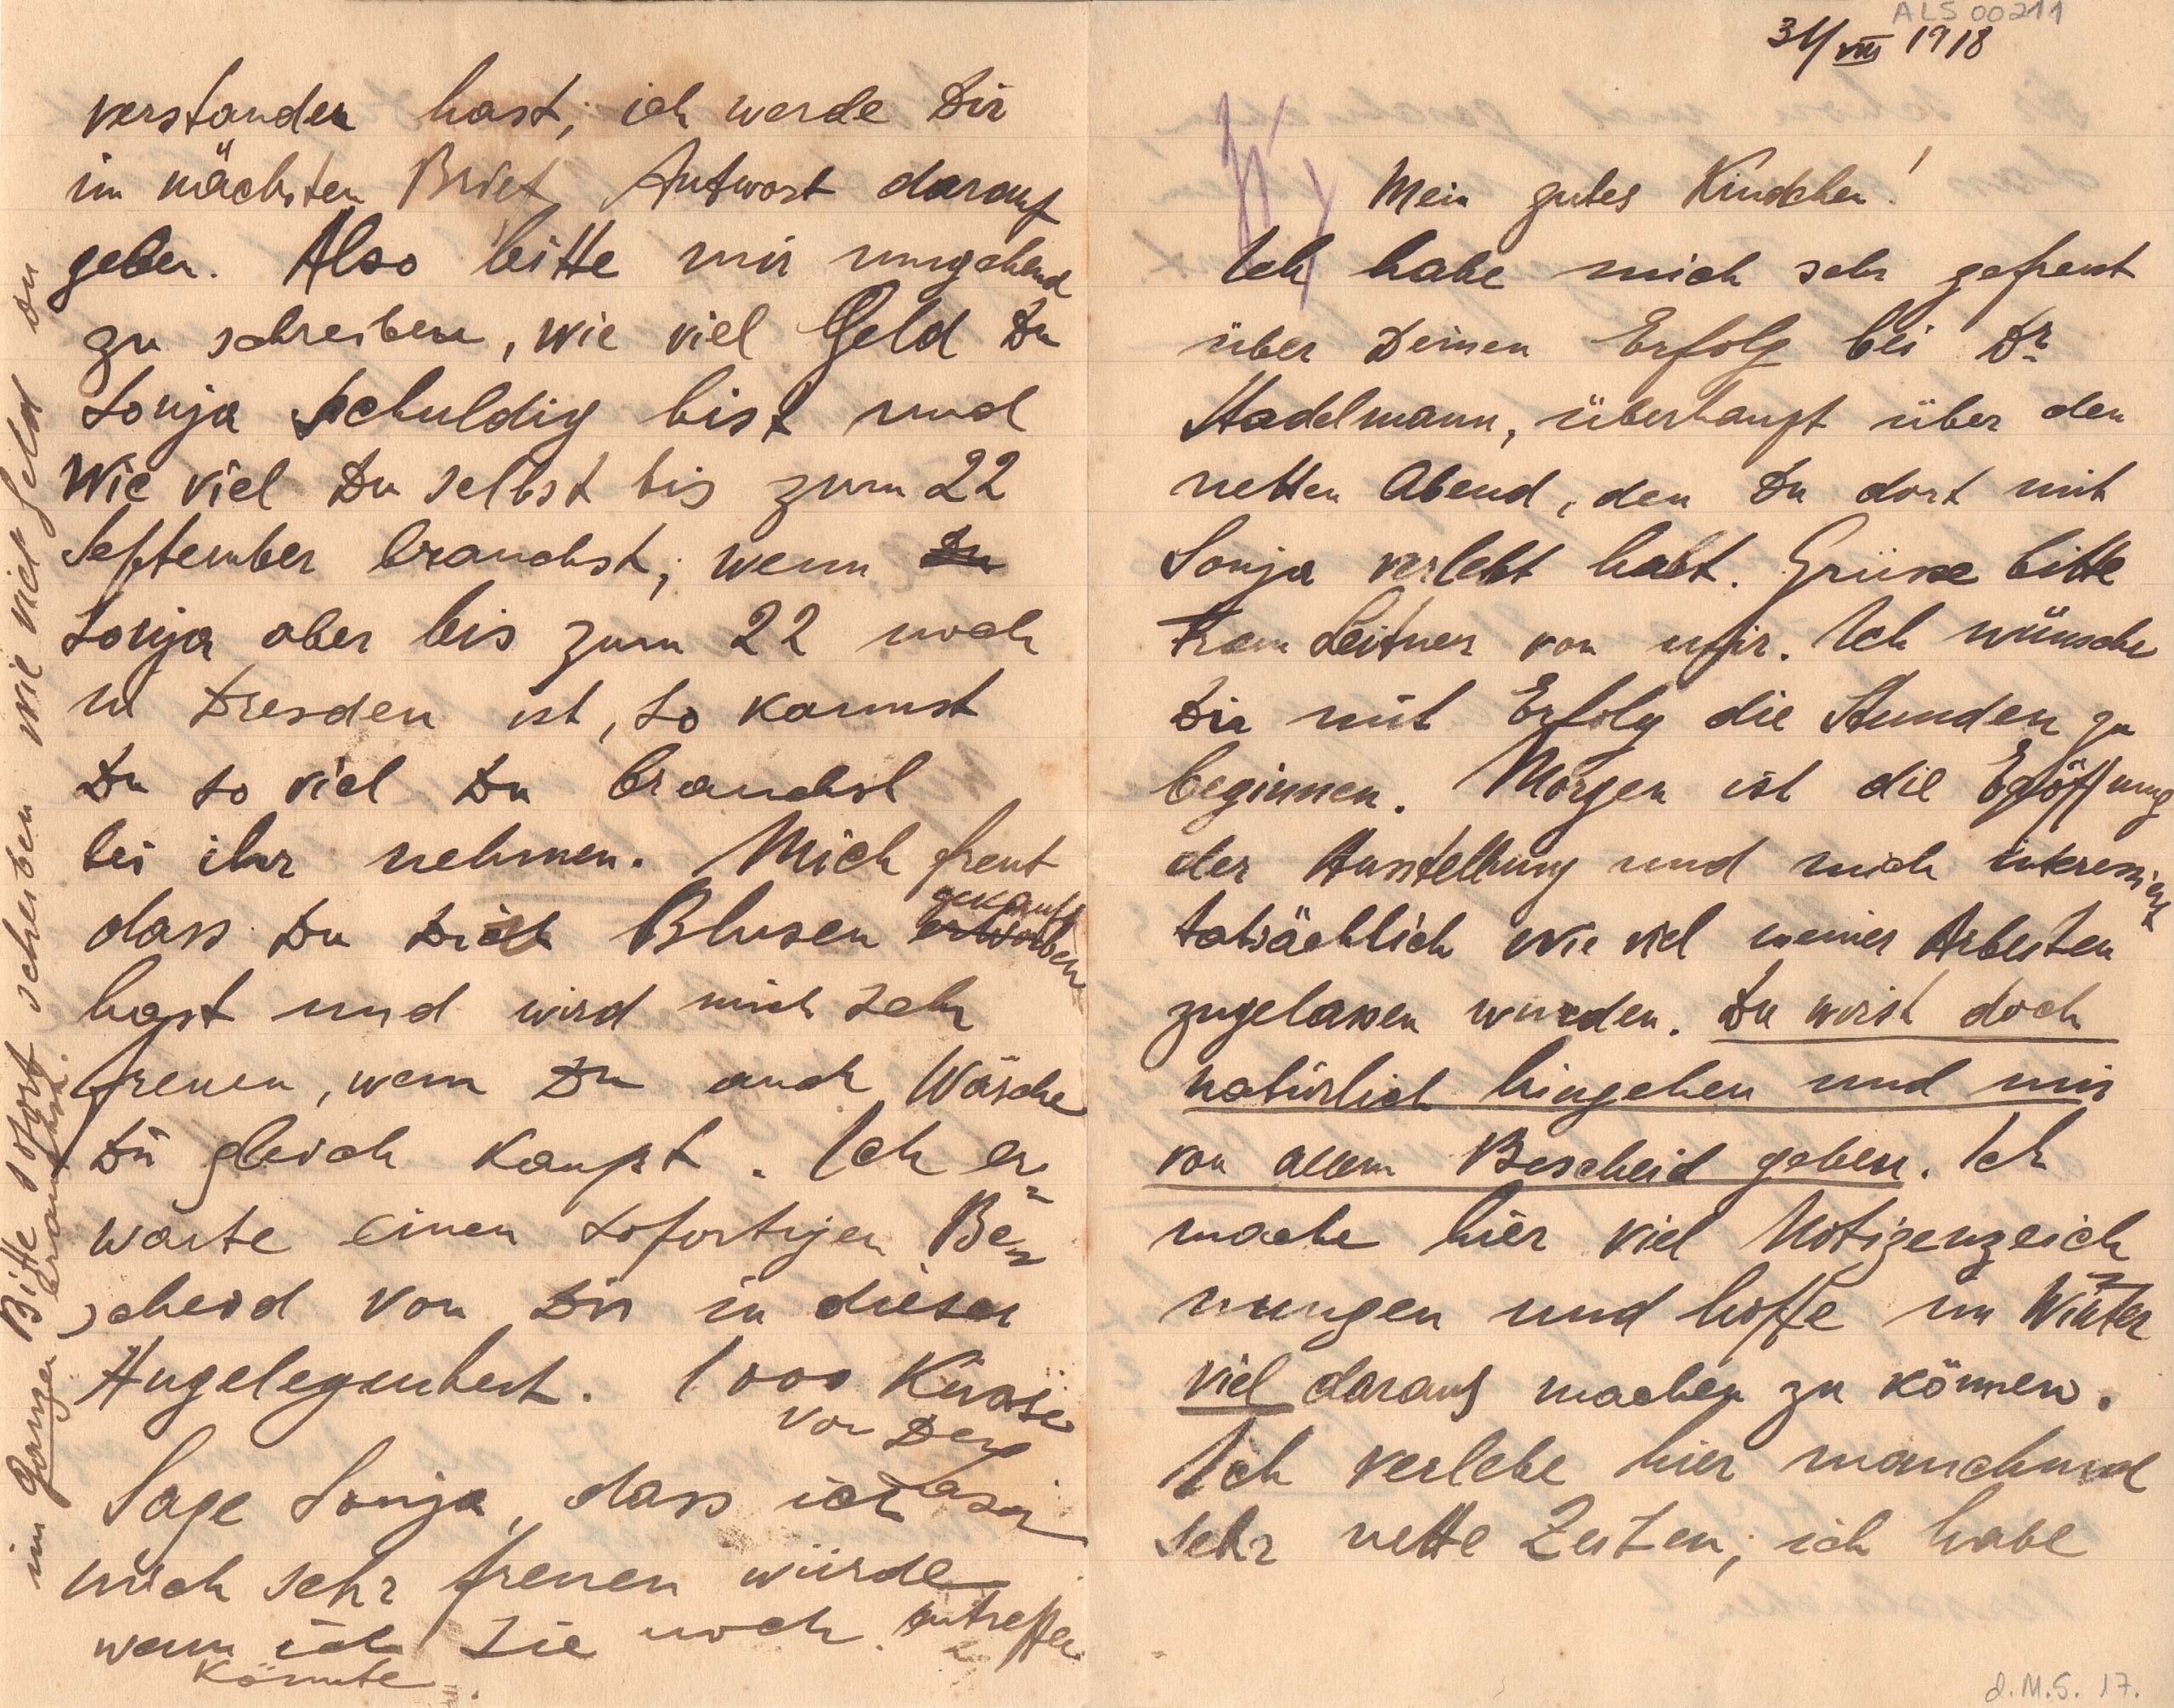 ALS 00211
31/VIII 1918
Mein gutes Kindchen!
Ich habe mich sehr gefreut
über Deinen Erfolg bei Dr
Stadelmann, überhaupt über den
netten Abend, den Du dort mit
Sonja verlebt habt. Grüsse bitte
Frau Leitner von mir. Ich wünsche
Dir mit Erfolg die Stunden zu
beginnen. Morgen ist die Eröffnung
der Ausstellung und mich interessiert
tatsächlich wie viel meiner Arbeiten
zugelassen wurden. Du wirst doch
natürlich hingehen und mir
von allem Bescheid geben. Ich
mache hier viel Notizenzeich
nungen und hoffe im Winter
viel daraus machen zu können.
Ich verlebe hier manchmal
sehr nette Zeiten; ich habe
d.M.S. 17.
verstanden hast; ich werde Dir
im nächsten Brief Antwort darauf
geben. Also bitte mir umgehend
zu schreiben, wie viel Geld Du
Sonja schuldig bist und
Wie viel Du selbst bis zum 22
September brauchst; wenn Du
Sonja aber bis zum 22 noch
in Dresden ist, so kannst
Du so viel Du brauchst
bei ihr nehmen. Mich freut
dass Du Dich Blusen erworben gekauft
hast und wird mich sehr
freuen, wenn Du auch Wäsche
Dir gleich kaufst. Ich er=
warte einen sofortigen Be=
scheid von Dir in dieser
Angelegenheit. 1000 Küsse
von Dein
Lasar
Sage Sonja, dass ich
mich sehr freuen würde
wenn ich Sie noch antreffen
könnte
Bitte sofort schreiben wie viel Geld Du
im Ganzen brauchst.